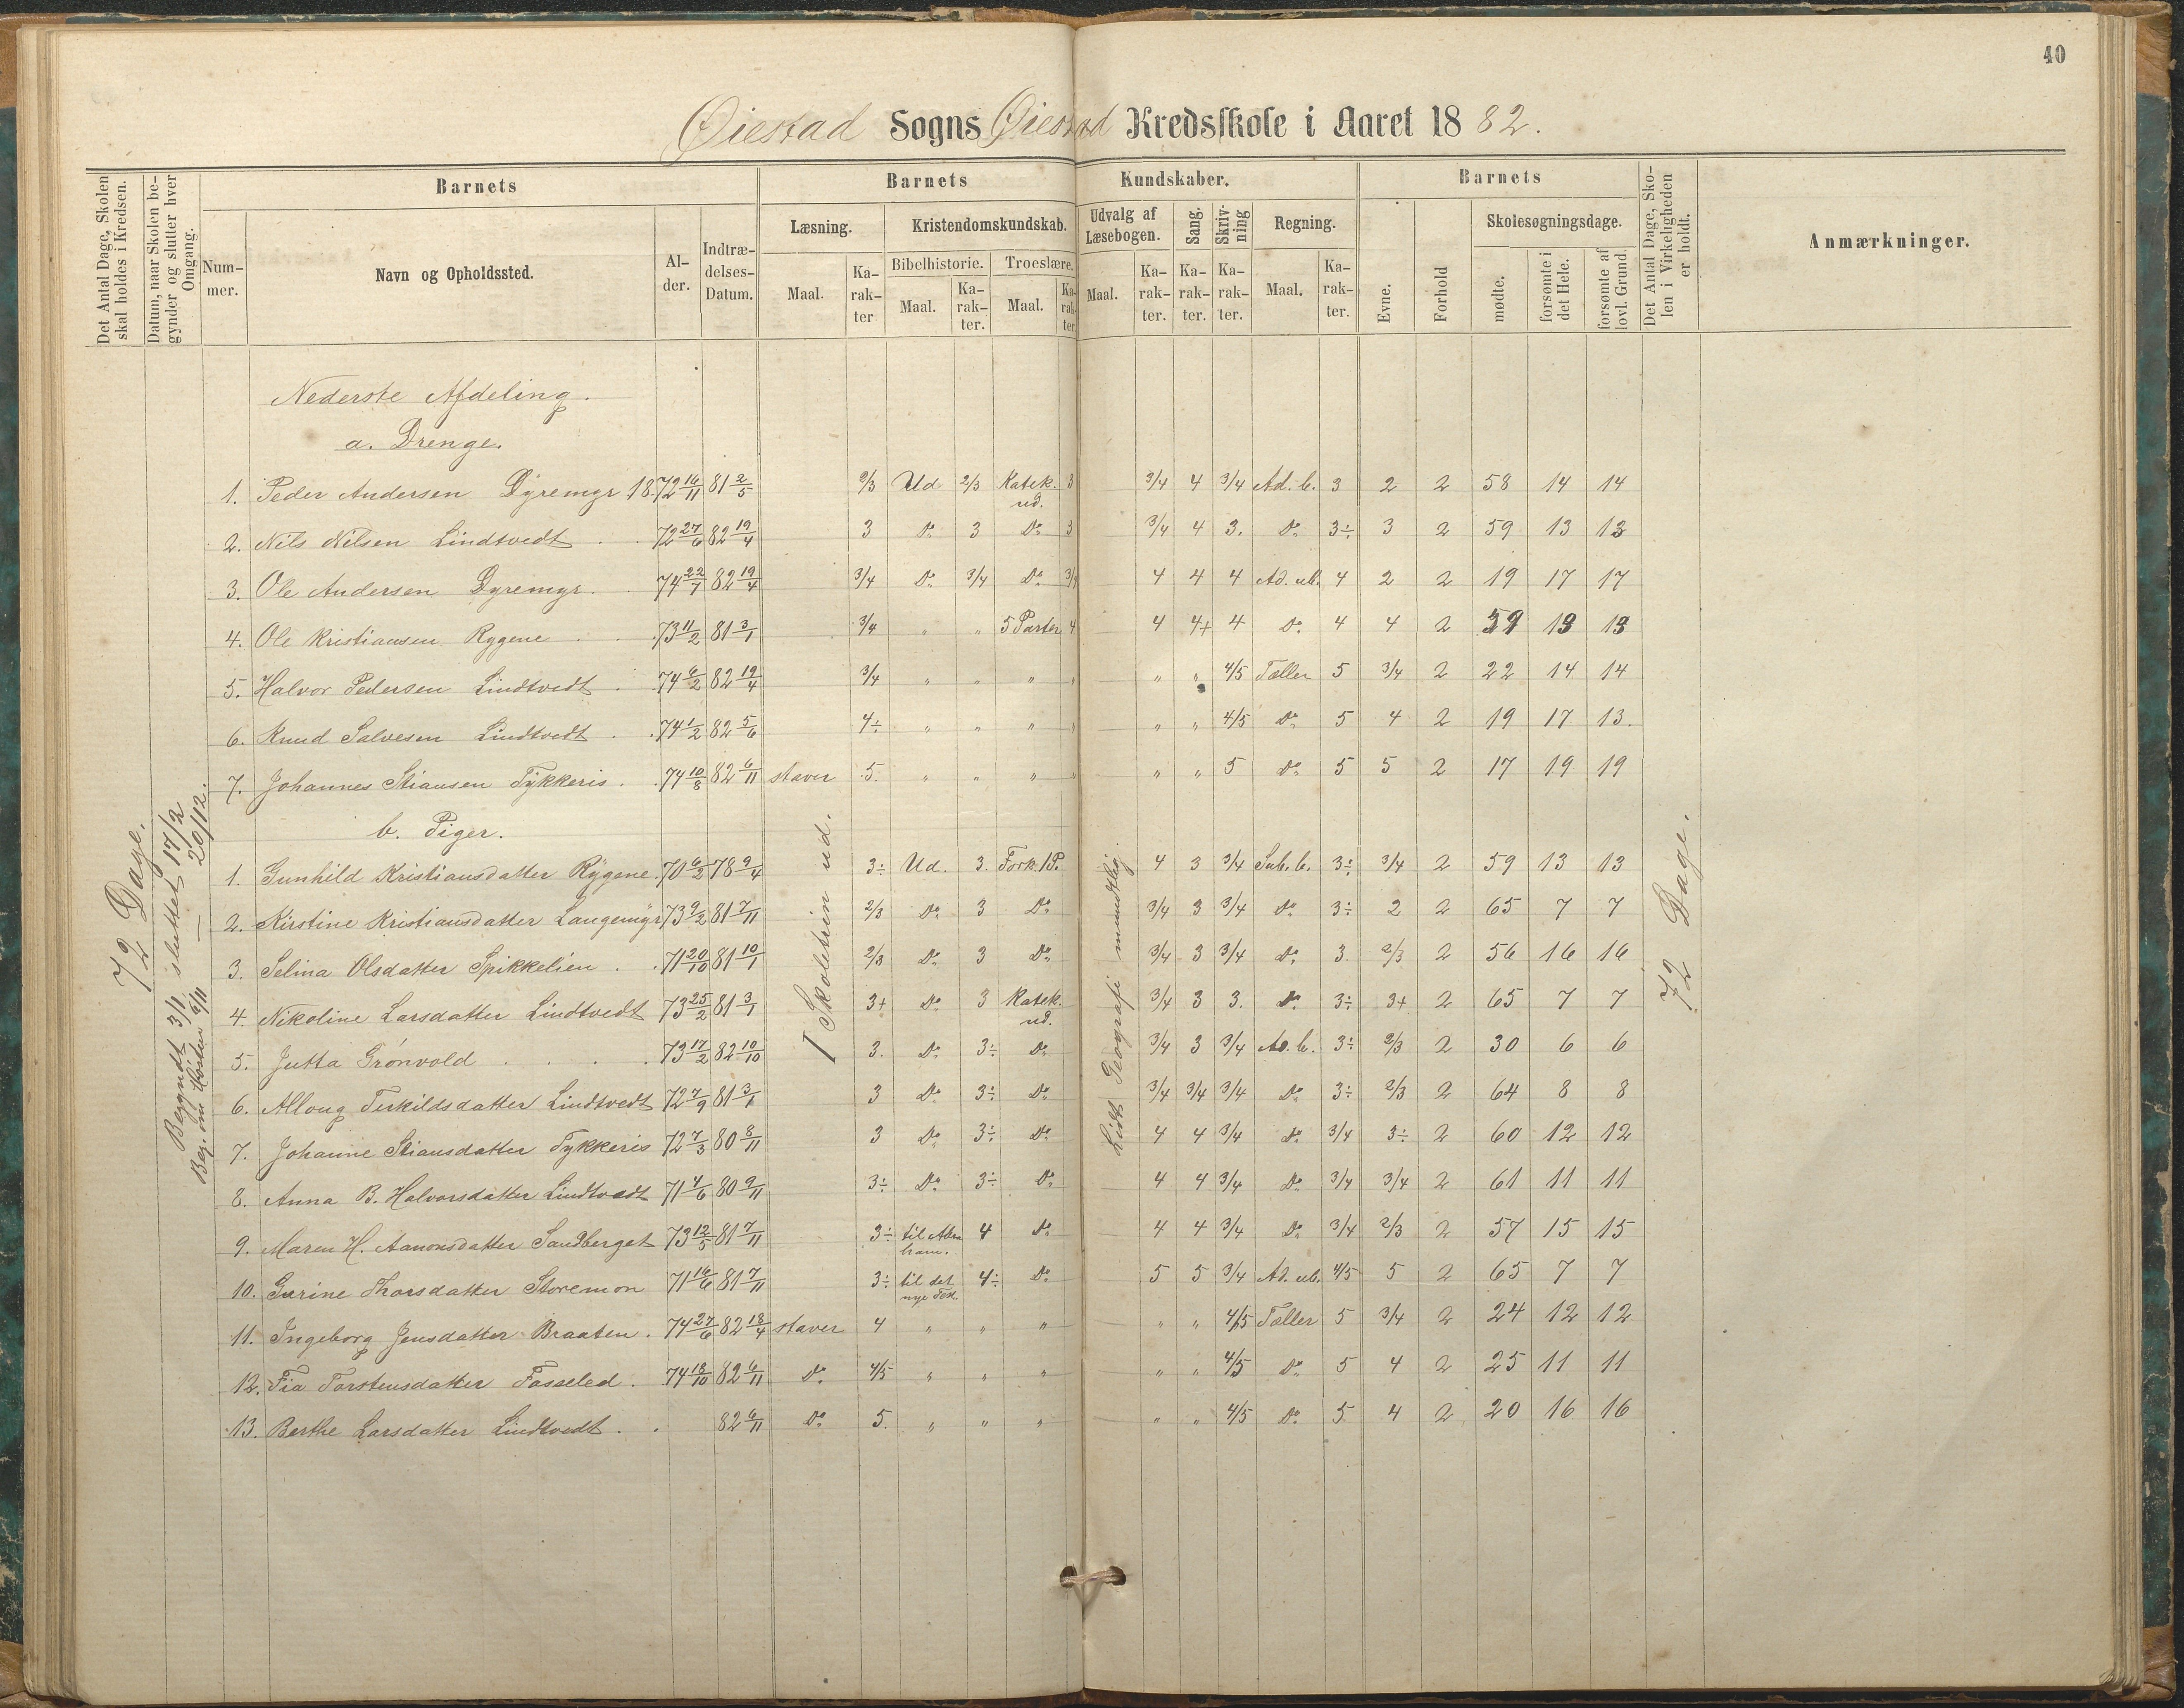 40
Øiestad Sogns Øiestad Kredsskole i Aaret 1882.
Det Antal Dage, Skolen skal holdes i Kredsen.
Datum, naar Skolen begynder og slutter hver Omgang.
Barnets
Nummer.
Navn og Opholdssted.
Alder.
Indtrædelses-Datum.
Barnets Kundskaber.
Læsning.
Maal.
Karakter
Kristendomskundskab.
Bibelhistorie.
Maal.
Karakter.
Troeslære.
Maal.
Karakter.
Udvalg af Læsebogen.
Maal.
Karakter.
Sang.
Karakter.
Skrivning
Karakter.
Regning.
Maal.
Karakter.
Barnets
Evne.
Forhold
Skolesøgningsdage.
mødte.
forsømte i det Hele.
forsømte af lovl. Grund.
Det Antal Dage, Skolen i Virkeligheden er holdt.
Anmærkninger.
Nederste Afdeling.
a. Drenge.
1. Peder Andersen Dyremyr 18.72 16/11 81 2/5 2/3 Ud 2/3 Katek. ud. 3 3/4 4 3/4 Ad. b. 3 2 2 58 14 14
2. Nils Nilsen Lindtvedt . . 72 27/6 82 19/4 3 Do 3 Do 3 3/4 4 3. Do 3÷ 3 2 59 13 13
3. Ole Andersen Dyremyr. . 74 22/7 82 19/4 3/4 Do 3/4 Do 3/4 4 4 4 Ad. ub. 4 2 2 19 17 17
4. Ole Kristiansen Rygene . . 73 11/2 81 3/1 3/4 " " 5 Parter 4 4 4+ 4 Do 4 4 2 59 13 13
5. Halvor Pedersen Lindtvedt . 74 6/2 82 19/4 3/4 " " " " " " 4/5 Tæller 5 3/4 2 22 14 14
6. Knud Salvesen Lindtvedt . . 74 1/2 82 5/6 4÷ " " " " " " 4/5 Do 5 4 2 19 17 13.
7. Johannes Stiansen Tykkeris . . 74 10/8 82 6/11 staver 5. " " " " " " 5 Do 5 5 2 17 19 19
b. Piger.
1. Gunhild Kristiansdatter Rygene. 70 6/2 78 9/4 3÷ Ud. 3. Fork. 1 P. 4 3 3/4 Sub. b. 3÷ 3/4 2 59 13 13
2. Kirstine Kristiansdatter Langemyr 73 9/2 81 7/11 2/3 Do 3 Do 3/4 3 3/4 Do 3÷ 2 2 65 7 7
3. Selina Olsdatter Spikkelien . . 71 20/10 81 10/1 2/3 Do 3 Do 3/4 3 3/4 Do 3 2/3 2 56 16 16
4. Nikoline Larsdatter Lindtvedt 73 25/2 81 3/1 3+ Do 3 Katek. ud. 3/4 3 3. Do 3÷ 3+ 2 65 7 7
5. Jutta Grønvold . . . . 73 17/2 82 10/10 3. Do 3÷ Do 3/4 3 3/4 Ad. b. 3÷ 2/3 2 30 6 6
6. Alloug Terkildsdatter Lindtvedt 72 7/9 81 3/1 3 Do 3÷ Do 3/4 3/4 3/4 Do 3÷ 2/3 2 64 8 8
7. Johanne Stiansdatter Tykkeris 72 7/3 80 8/11 3 Do 3÷ Do 4 4 3/4 Do 3/4 3÷ 2 60 12 12
8. Anna B. Halvorsdatter Lindtvedt 71 4/6 80 9/11 3÷ Do 3÷ Do 4 4 3/4 Do 3/4 3/4 2 61 11 11
9. Maren H. Aanonsdatter Sandberget 73 12/5 81 7/11 3÷ til Abraham. 4 Do 4 4 3/4 Do 3/4 2/3 2 57 15 15
10. Gurine Thorsdatter Storemon 71 16/6 81 7/11 3÷ til det nye Test. 4÷ Do 5 5 3/4 Ad. ub. 4/5 5 2 65 7 7
11. Ingeborg Jensdatter Braaten . 74 27/6 82 18/4 staver 4 " " " " " 4/5 Tæller 5 3/4 2 24 12 12
12. Fia Torstensdatter Fosseled . 74 18/10 82 6/11 Do 4/5 " " " " " 4/5 Do 5 4 2 25 11 11
13. Berthe Larsdatter Lindtvedt . . 82 6/11 Do 5. " " " " " 4/5 Do 5. 4 2 20 16 16
72 Dage.
Begyndt 3/1 sluttet 17/2
Beg. om Høsten 6/11 — 20/12.
I Skoletien ud.
Lidt Geografi mundtlig.
72 Dage.